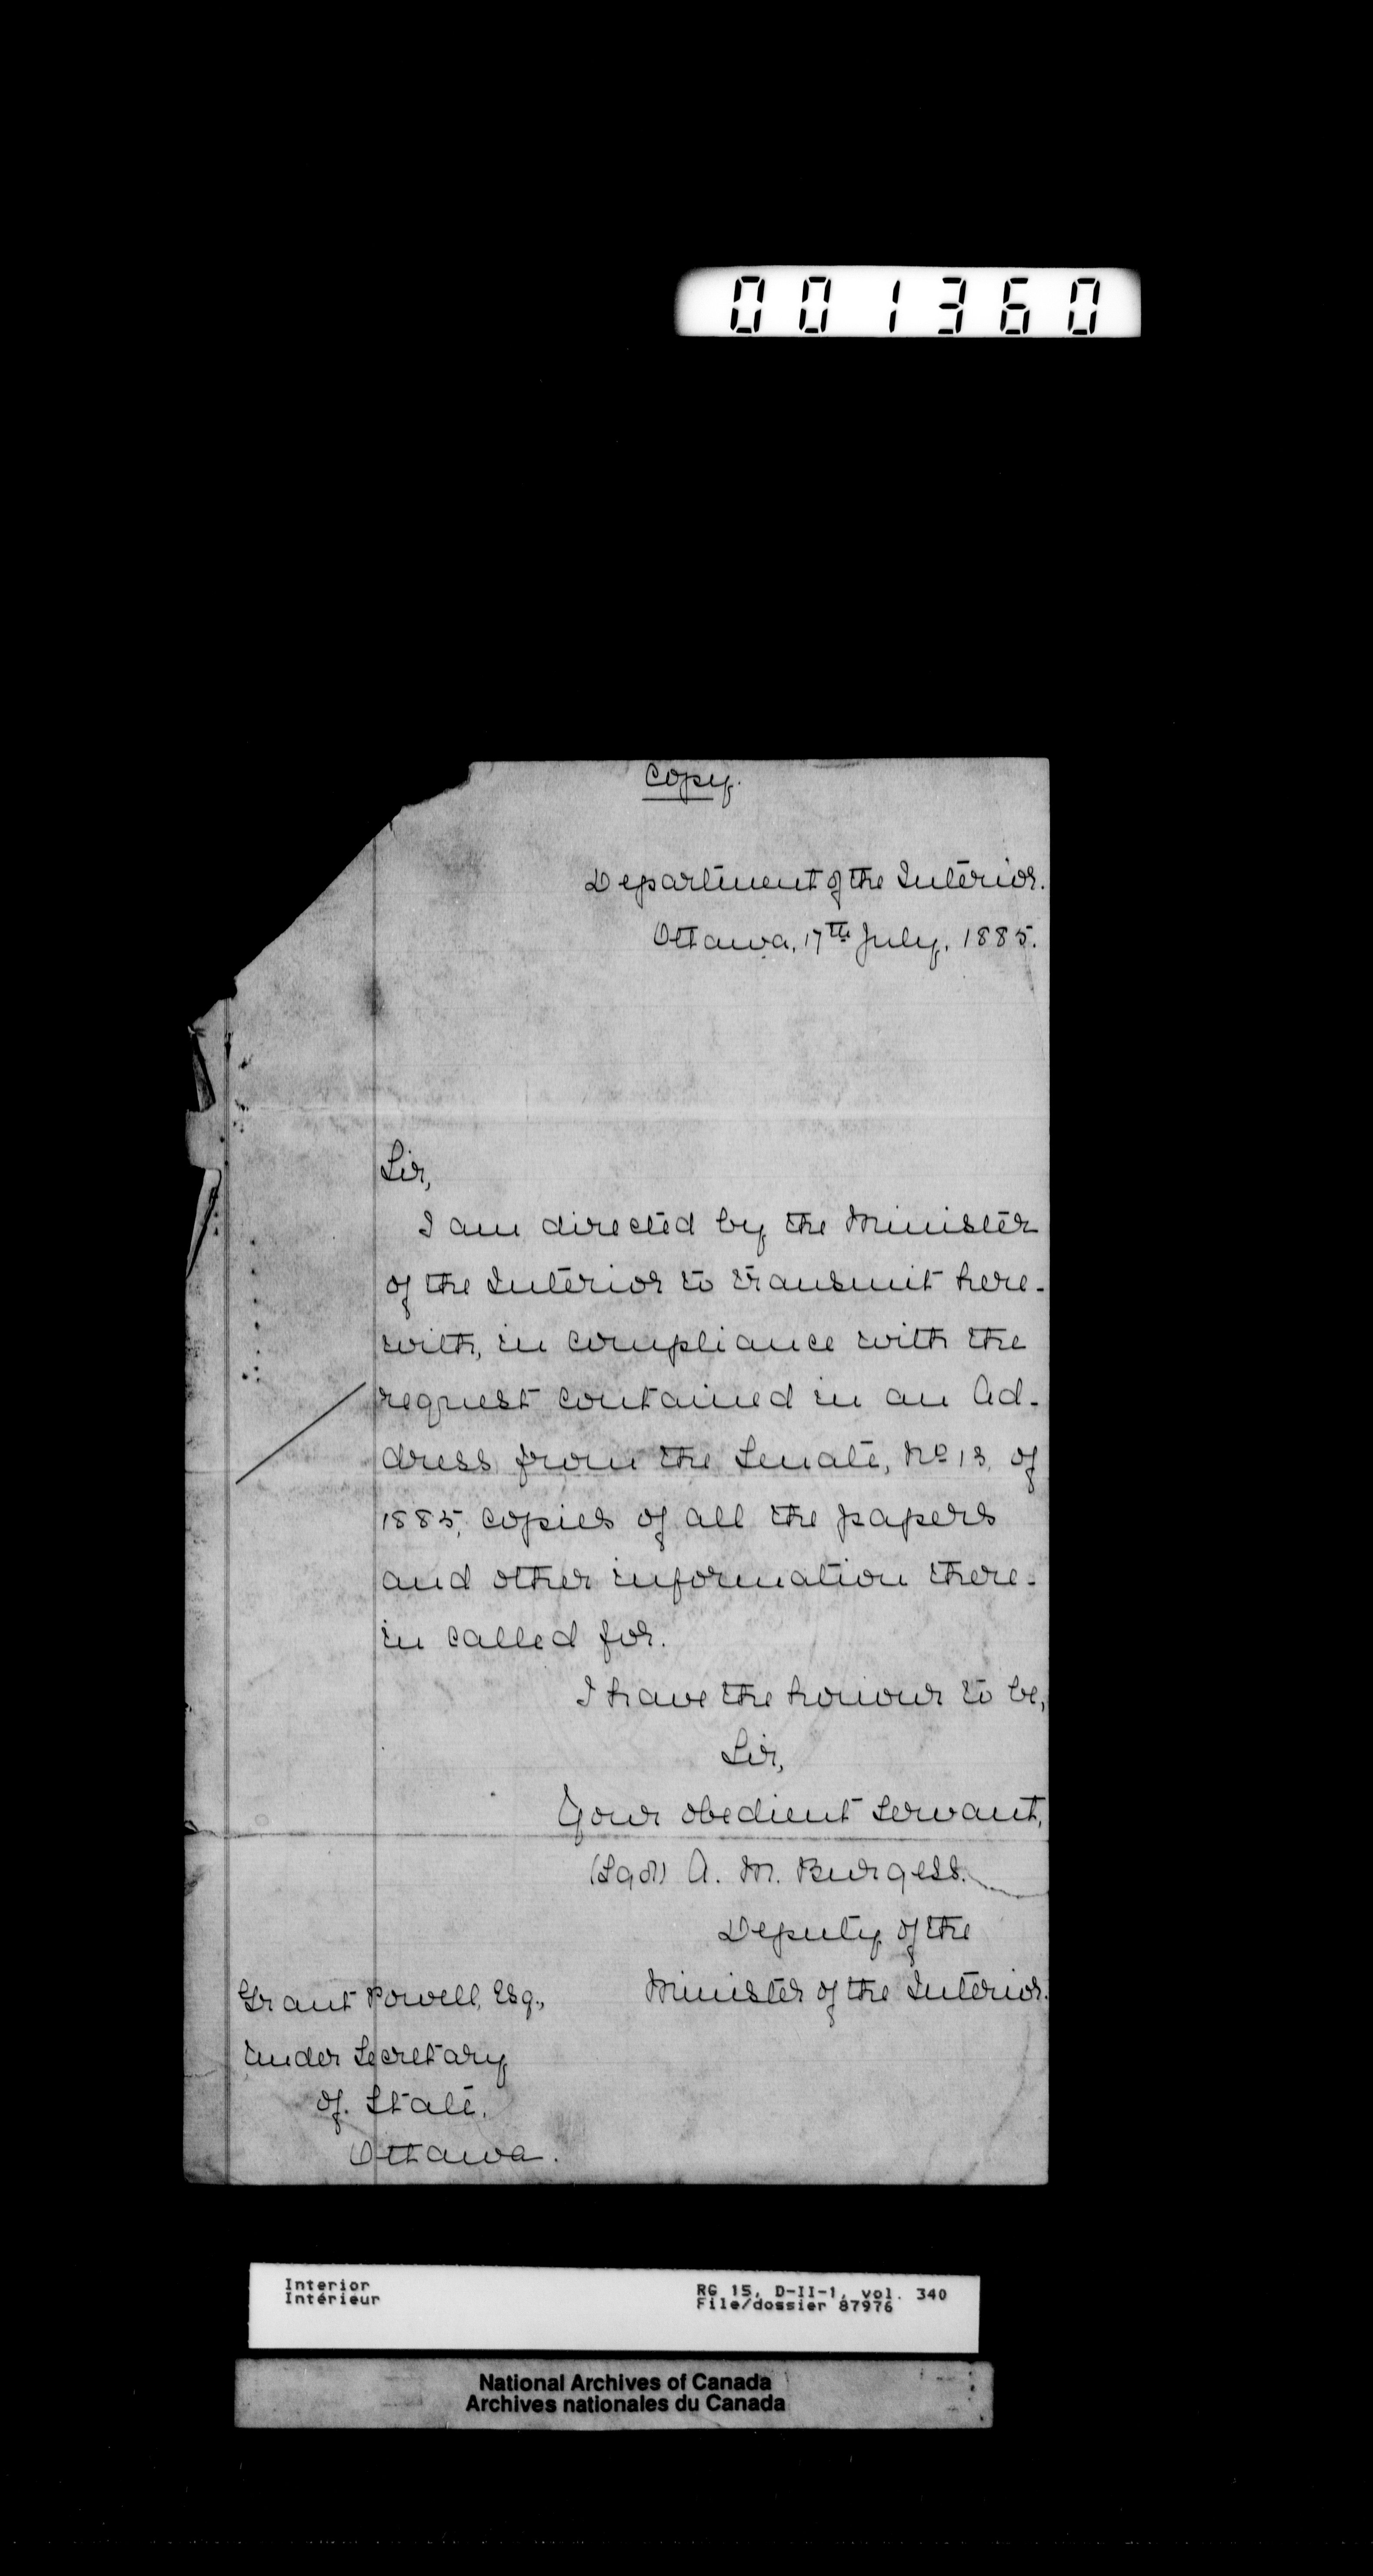 001360
Copy.
Department of the Interior.
Ottawa, 17th July, 1885.
Sir,
I am directed by the Minister
of the Interior to transmit here-
with, in compliance with the
request contained in an Ad-
dress from the Senate, No 13, of
1885, copies of all the papers
and other information there-
in called for.
I have the honour to be,
Sir,
Your obedient servant,
(Sgd) A. M. Burgess.
Deputy of the
Minister of the Interior.
Grant Powell, Esq.,
Under Secretary
of State,
Ottawa.
Interior
Intérieur
RG 15, D-II-1, vol. 340
File/dossier 87976
National Archives of Canada
Archives nationales du Canada